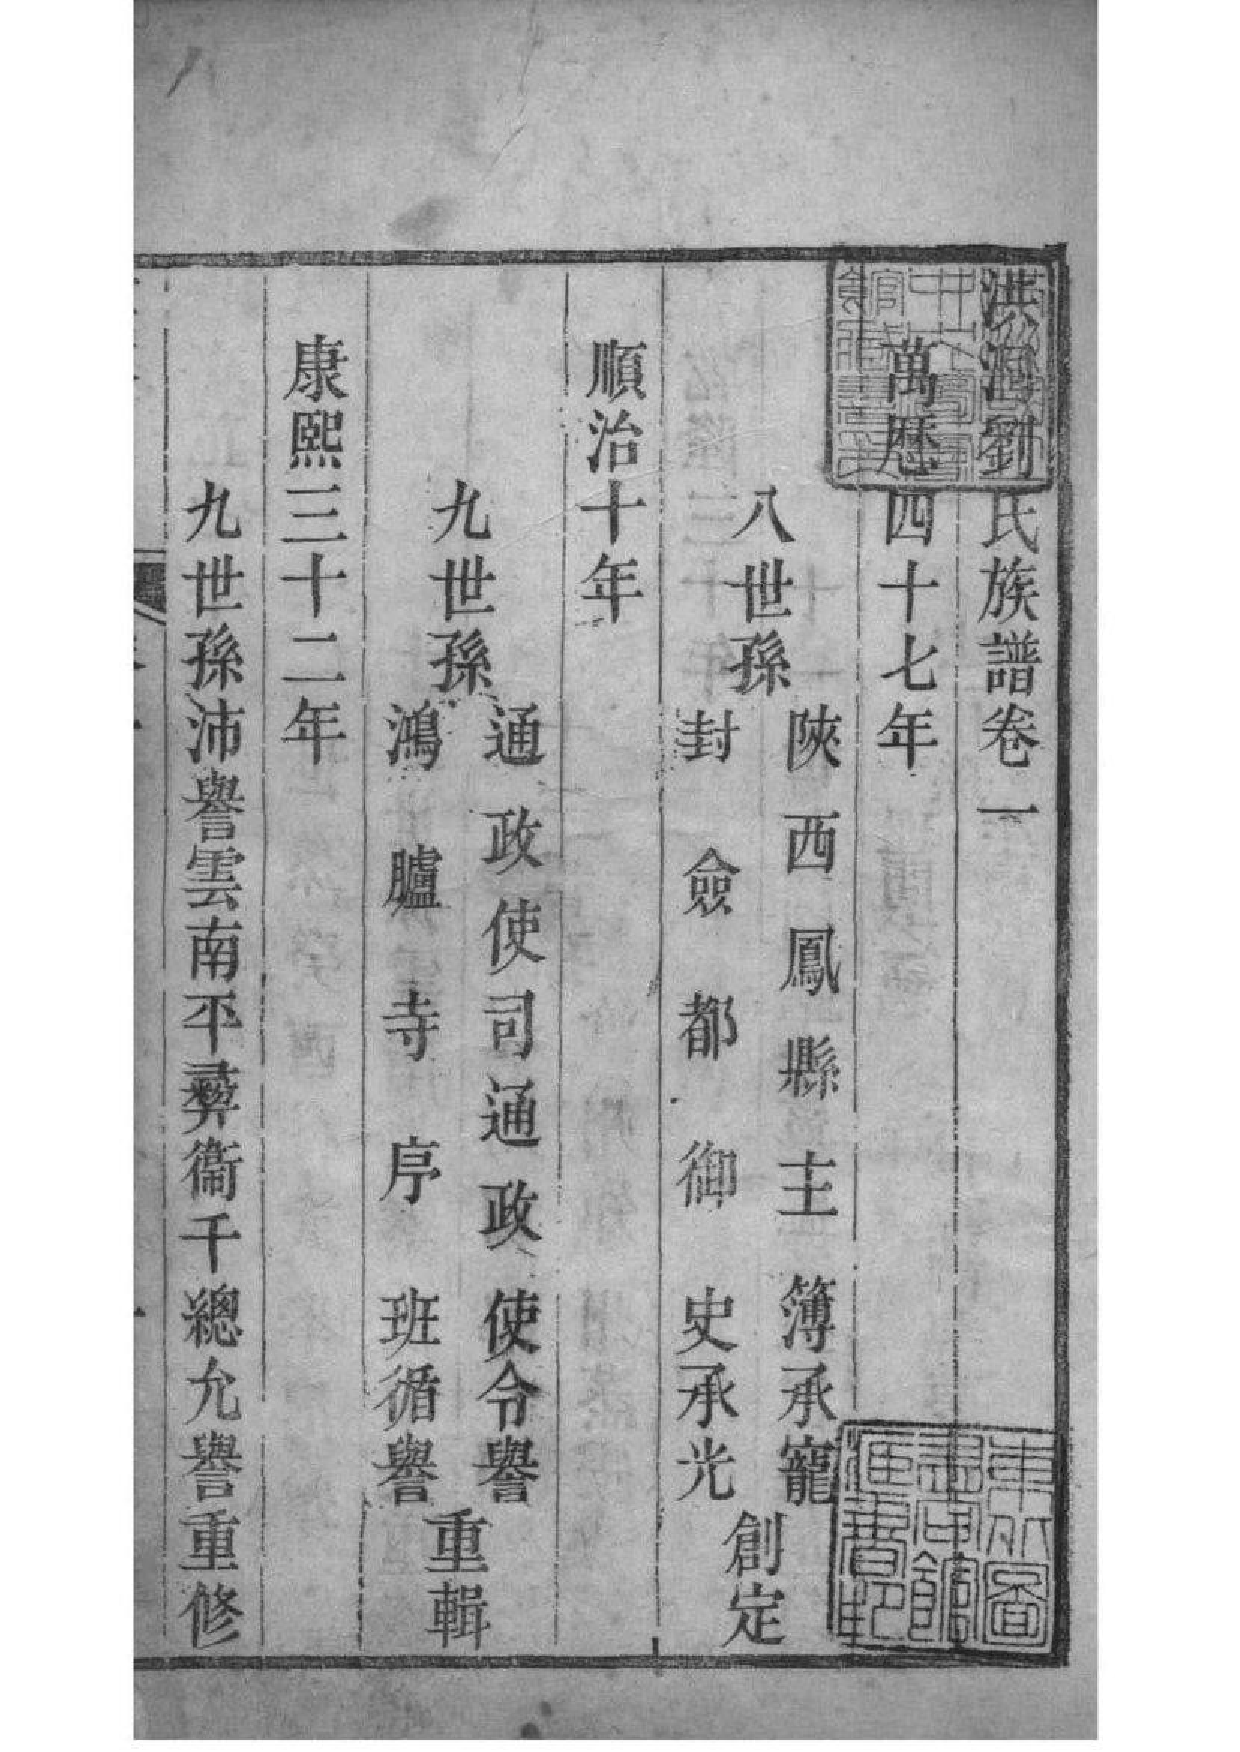 洪洞劉氏族譜卷一
萬曆四十七年
八世孫
陝西鳳縣主簿承寵
封僉都御史承光
創定
順治十年
九世孫
通政使司通政使令譽
鴻臚寺序班循譽
重輯
康熙三十二年
九世孫沛譽雲南平彜衞千總允譽重修